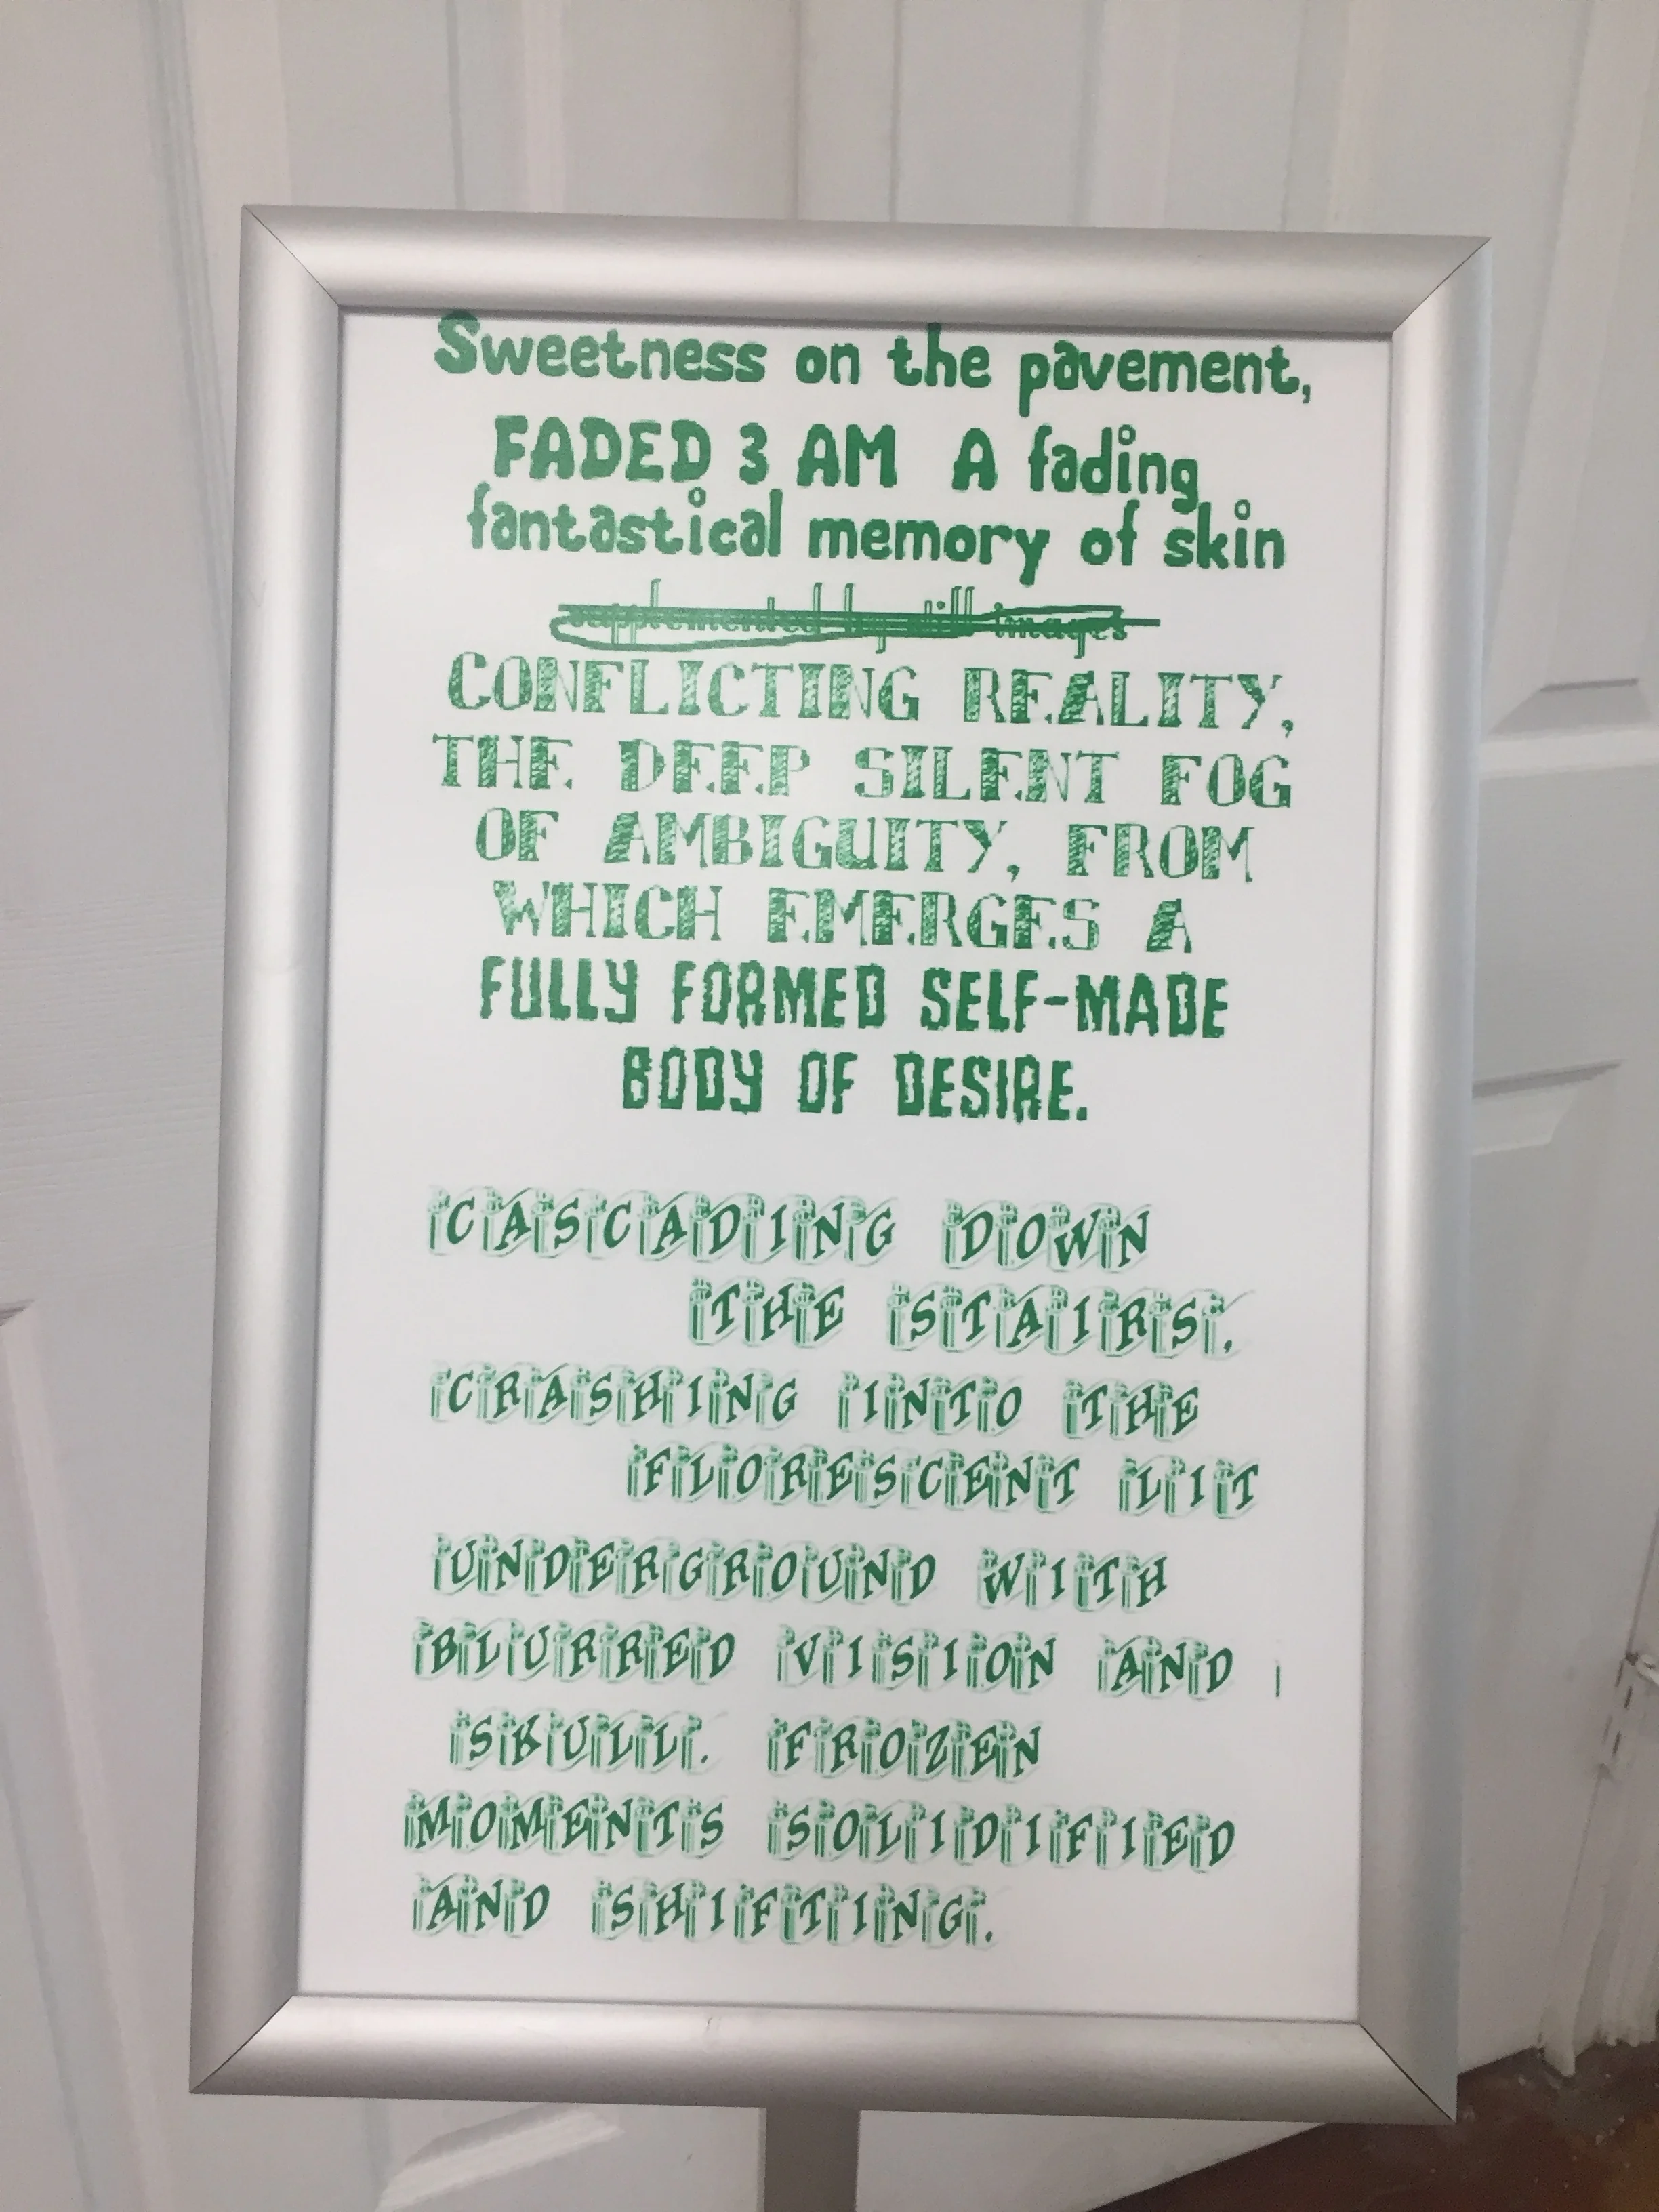 Sweetness on the pavement,
FADED 3 AM A fading
fantastical memory of skin
supplemented by still images
CONFLICTING REALITY,
THE DEEP SILENT FOG
OF AMBIGUITY, FROM
WHICH EMERGES A
FULLY FORMED SELF-MADE
BODY OF DESIRE.
CASCADING DOWN
THE STAIRS.
CRASHING INTO THE
FLORESCENT LIT
UNDERGROUND WITH
BLURRED VISION AND
SKULL. FROZEN
MOMENTS SOLIDIFIED
AND SHIFTING.